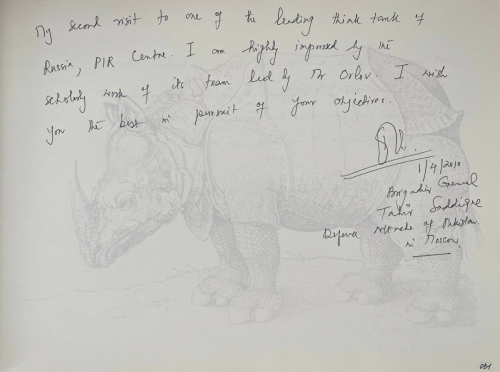 My second visit to one of the leading think tank of
Russia, PIR Centre. I am highly impressed by the
scholarly work of its team led by Mr Orlov. I wish
you the best in pursuit of your objectives.
1/4/2010
Brigadier General
Tahir Saddique
Defence Attache of Pakistan
in Moscow.